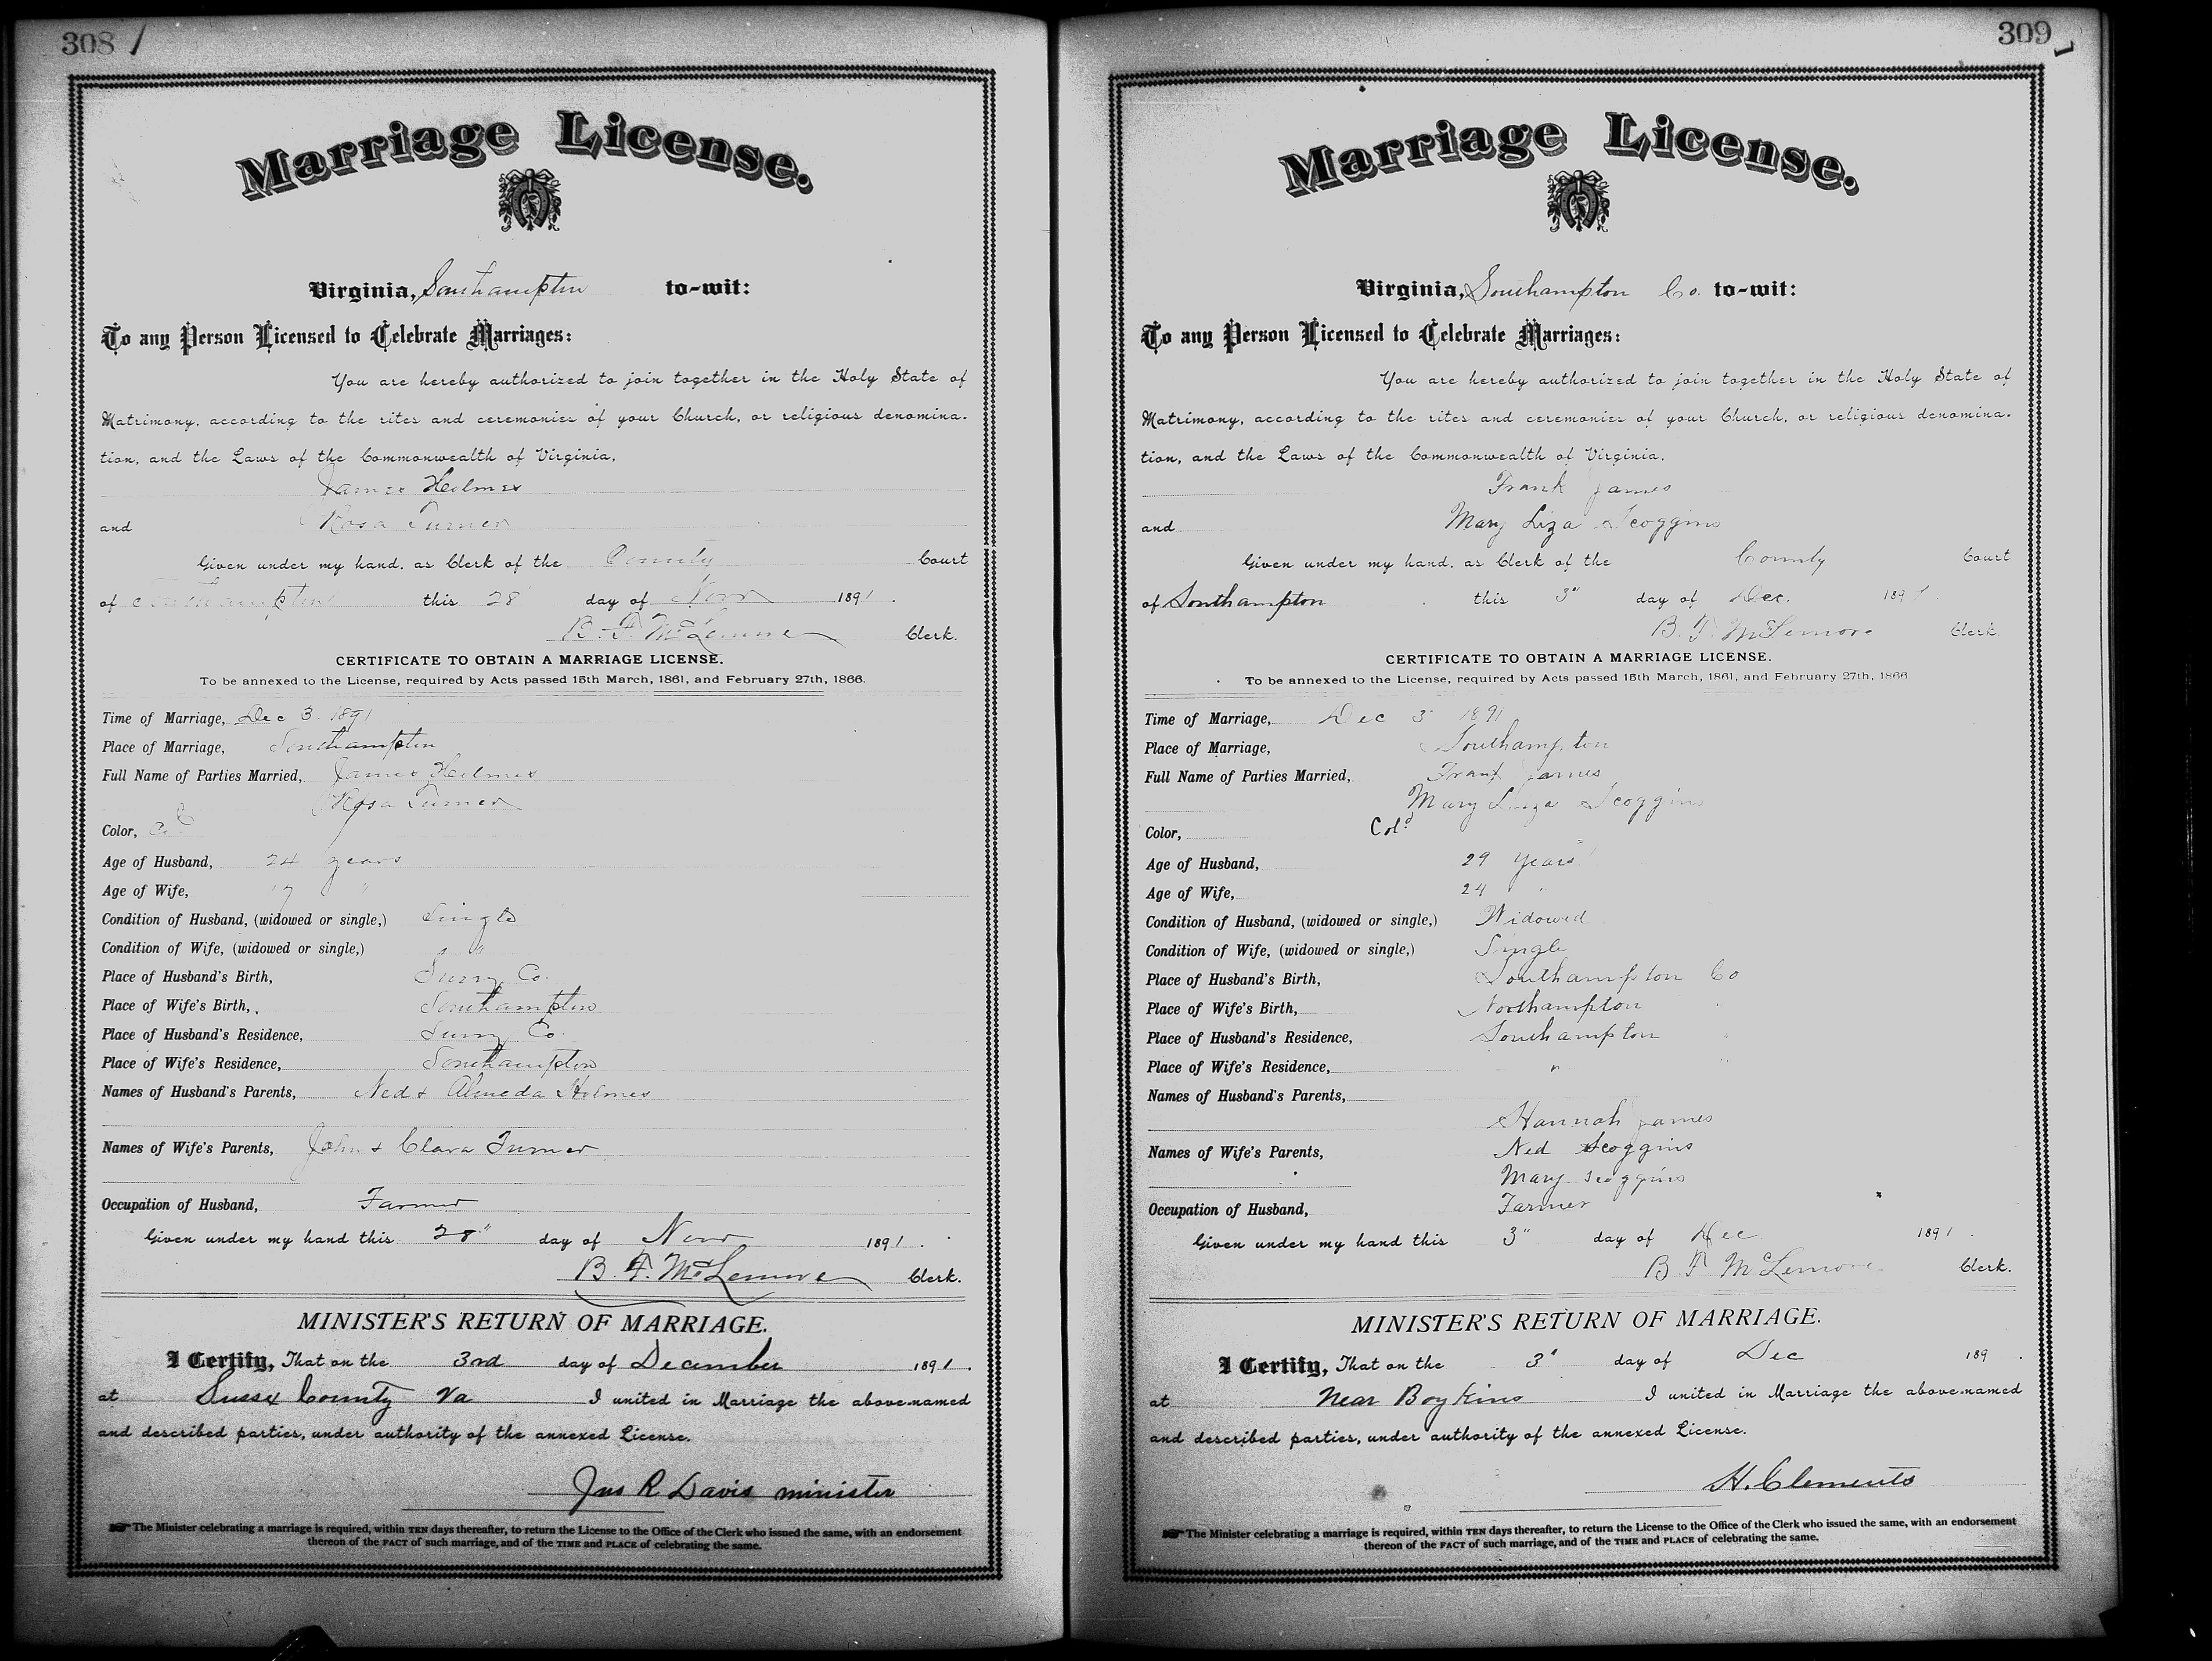 308
Marriage License.
Virginia, Southampton to-wit:
To any Person Licensed to Celebrate Marriages:
You are hereby authorized to join together in the Holy State of
Matrimony, according to the rites and ceremonies of your Church, or religious denomina-
tion, and the Laws of the Commonwealth of Virginia,
James Holmes
and Rosa Turner
Given under my hand, as Clerk of the County Court
of Southampton this 28 day of Novr 1891.
B. F. McLemore Clerk.
CERTIFICATE TO OBTAIN A MARRIAGE LICENSE.
To be annexed to the License, required by Acts passed 15th March, 1861, and February 27th, 1866.
Time of Marriage, Dec 3 1891
Place of Marriage, Southampton
Full Name of Parties Married, James Holmes
Rosa Turner
Color,
Age of Husband, 24 years
Age of Wife, 17 "
Condition of Husband, (widowed or single,) Single
Condition of Wife, (widowed or single,) "
Place of Husband's Birth, Surry Co.
Place of Wife's Birth, Southampton
Place of Husband's Residence, Surry Co.
Place of Wife's Residence, Southampton
Names of Husband's Parents, Ned & Almeda Holmes
Names of Wife's Parents, John & Clara Turner
Occupation of Husband, Farmer
Given under my hand this 28" day of Novr 1891.
B. F. McLemore Clerk.
MINISTER'S RETURN OF MARRIAGE.
I Certify, That on the 3rd day of December 1891.
at Sussex County Va I united in Marriage the above-named
and described parties, under authority of the annexed License.
Jas R Davis minister
The Minister celebrating a marriage is required, within TEN days thereafter, to return the License to the Office of the Clerk who issued the same, with an endorsement
thereon of the FACT of such marriage, and of the TIME and PLACE of celebrating the same.
309
Marriage License.
Virginia, Southampton Co. to-wit:
To any Person Licensed to Celebrate Marriages:
You are hereby authorized to join together in the Holy State of
Matrimony, according to the rites and ceremonies of your Church, or religious denomina-
tion, and the Laws of the Commonwealth of Virginia,
Frank James
and Mary Liza Scoggins
Given under my hand, as Clerk of the County Court
of Southampton this 3" day of Dec. 1891.
B. F. McLemore Clerk.
CERTIFICATE TO OBTAIN A MARRIAGE LICENSE.
To be annexed to the License, required by Acts passed 15th March, 1861, and February 27th, 1866
Time of Marriage, Dec 3" 1891
Place of Marriage, Southampton
Full Name of Parties Married, Frank James
Mary Liza Scoggins
Color, Cold
Age of Husband, 29 years
Age of Wife, 24 "
Condition of Husband, (widowed or single,) Widowed
Condition of Wife, (widowed or single,) Single
Place of Husband's Birth, Southampton Co
Place of Wife's Birth, Northampton "
Place of Husband's Residence, Southampton "
Place of Wife's Residence, " "
Names of Husband's Parents,
Hannah James
Names of Wife's Parents, Ned Scoggins
Mary Scoggins
Occupation of Husband, Farmer
Given under my hand this 3" day of Dec 1891.
B F McLemore Clerk.
MINISTER'S RETURN OF MARRIAGE.
I Certify, That on the 3" day of Dec 189 .
at Near Boykins I united in Marriage the above-named
and described parties, under authority of the annexed License.
H. Clements
The Minister celebrating a marriage is required, within TEN days thereafter, to return the License to the Office of the Clerk who issued the same, with an endorsement
thereon of the FACT of such marriage, and of the TIME and PLACE of celebrating the same.